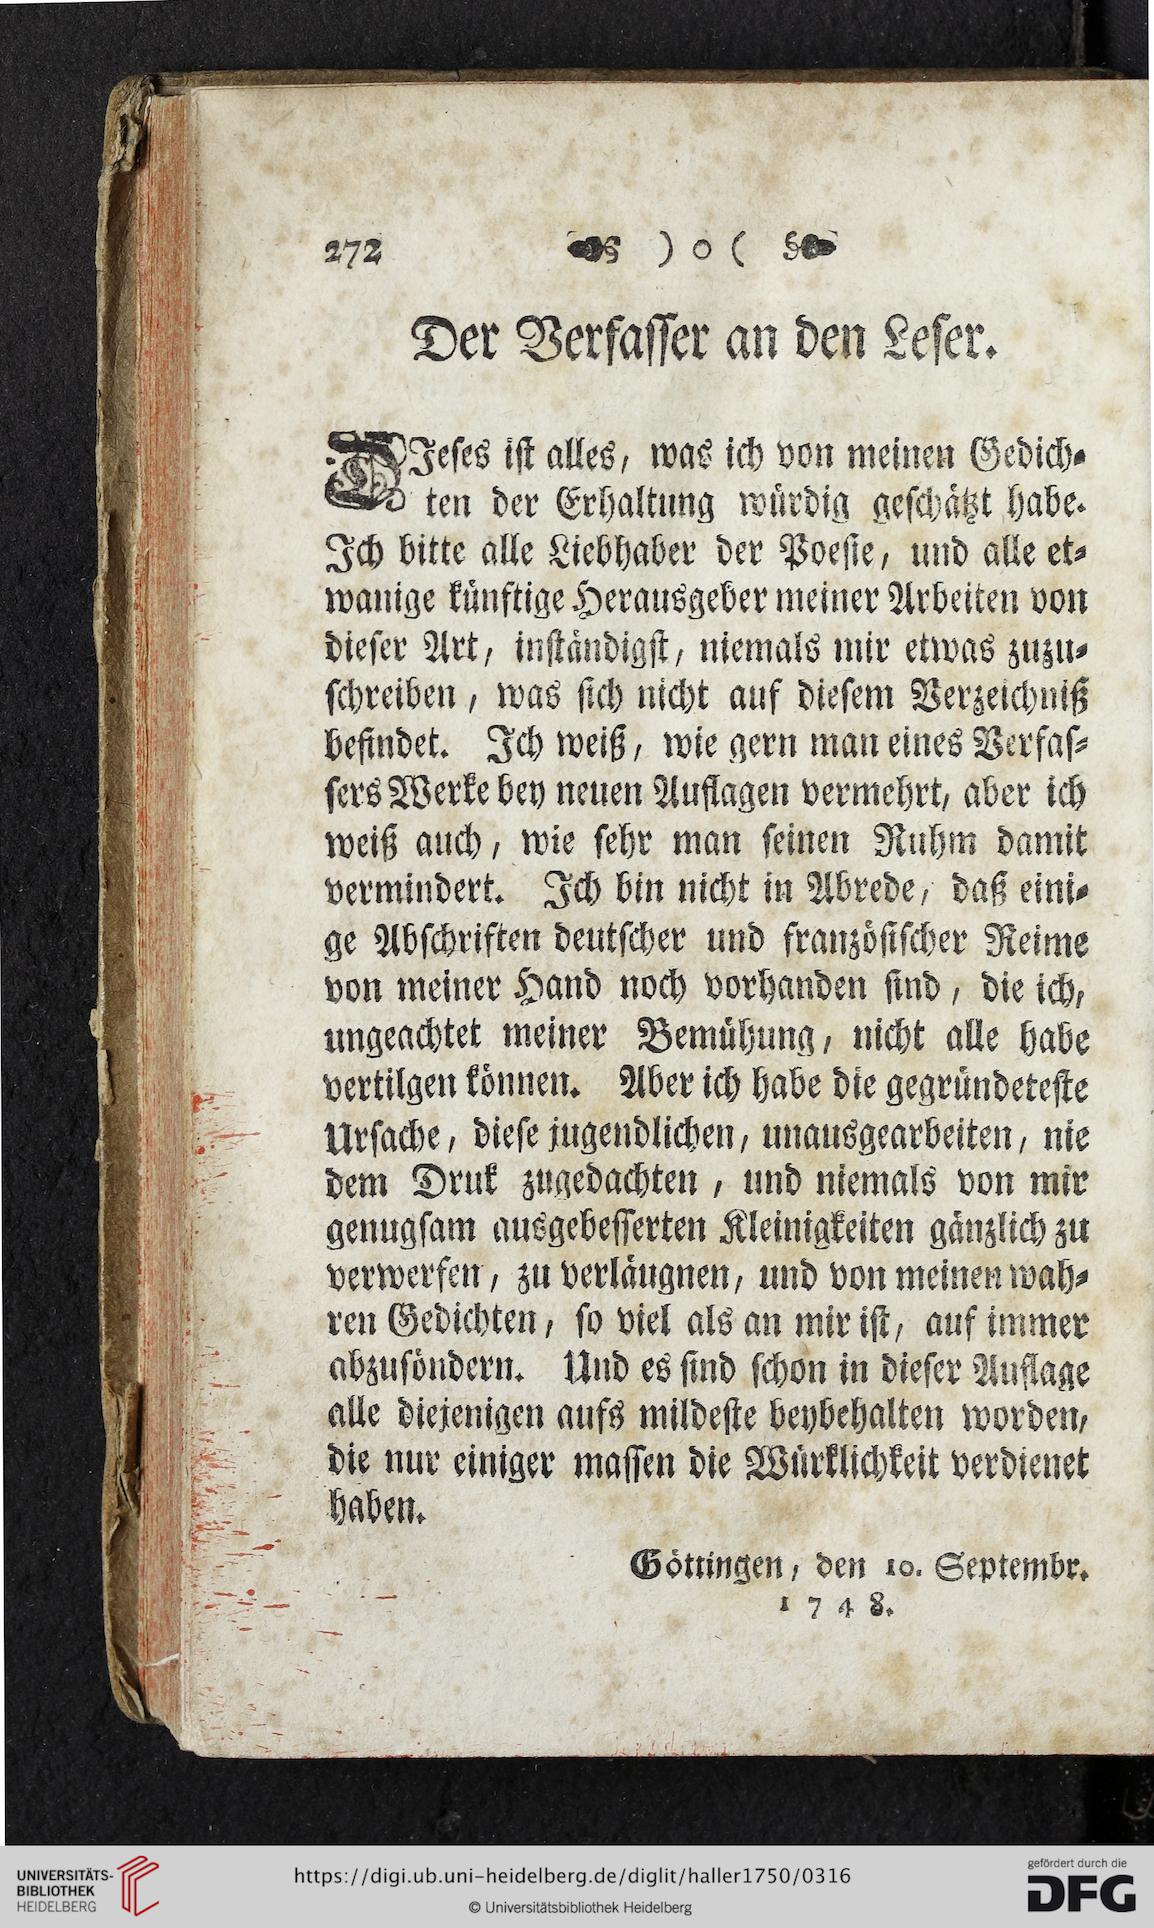 272 ) o (
Der Verfasser an den Leser.
DJeses ist alles, was ich von meinen Gedich-
ten der Erhaltung würdig geschätzt habe.
Jch bitte alle Liebhaber der Poesie, und alle et-
wanige künftige Herausgeber meiner Arbeiten von
dieser Art, inständigst, niemals mir etwas zuzu-
schreiben, was sich nicht auf diesem Verzeichniß
befindet. Jch weiß, wie gern man eines Verfas-
sers Werke bey neuen Auflagen vermehrt, aber ich
weiß auch, wie sehr man seinen Ruhm damit
vermindert. Jch bin nicht in Abrede, daß eini-
ge Abschriften deutscher und französischer Reime
von meiner Hand noch vorhanden sind, die ich,
ungeachtet meiner Bemühung, nicht alle habe
vertilgen können. Aber ich habe die gegründeteste
Ursache, diese jugendlichen, unausgearbeiten, nie
dem Druk zugedachten, und niemals von mir
genugsam ausgebesserten Kleinigkeiten gänzlich zu
verwerfen, zu verläugnen, und von meinen wah-
ren Gedichten, so viel als an mir ist, auf immer
abzusöndern. Und es sind schon in dieser Auflage
alle diejenigen aufs mildeste beybehalten worden,
die nur einiger massen die Würklichkeit verdienet
haben.
Göttingen, den 10. Septembr.
1748.
UNIVERSITÄTS-
BIBLIOTHEK
HEIDELBERG
https://digi.ub.uni-heidelberg.de/diglit/haller1750/0316
© Universitätsbibliothek Heidelberg
gefördert durch die
DFG